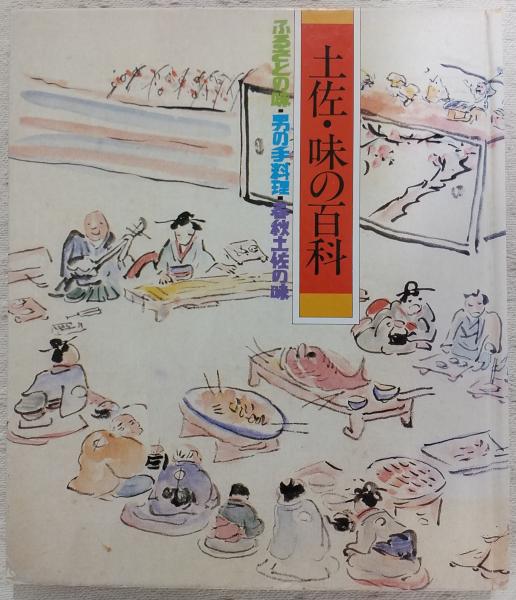 土佐・味の百科
ふるさとの味・男の手料理・春秋土佐の味